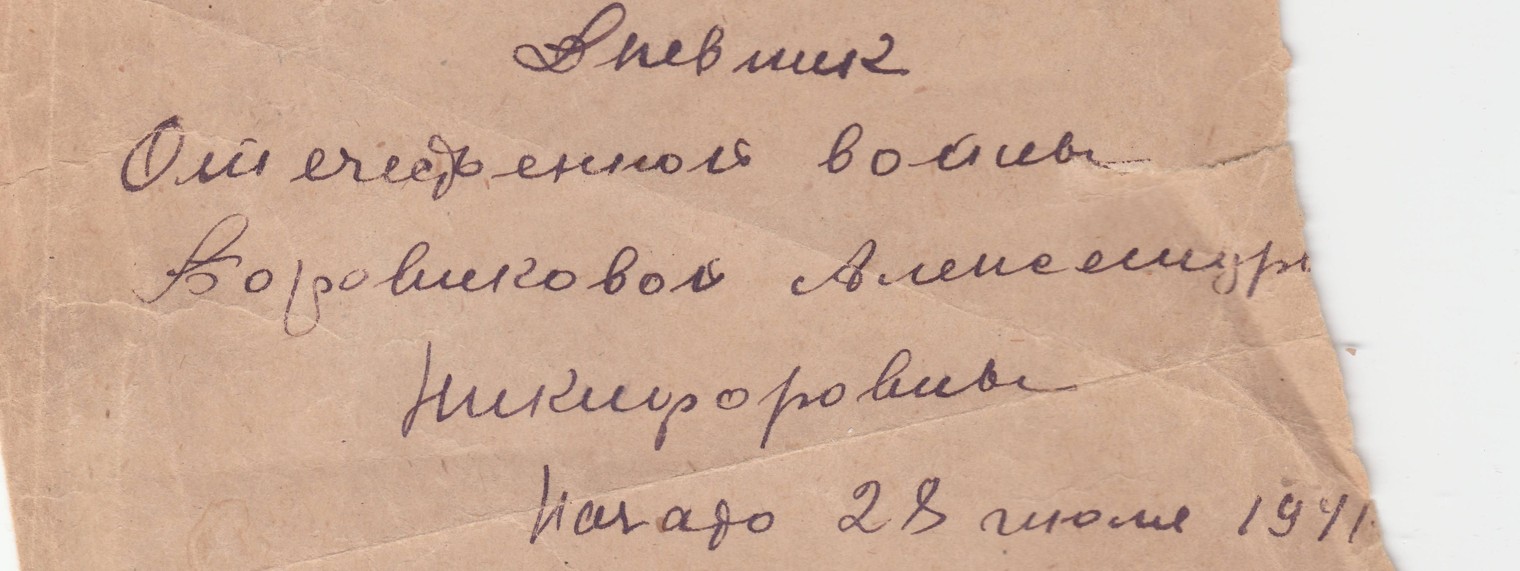 Дневник
Отечественной войны
Боровиковой Александры
Никифоровны
Начато 28 июля 1941